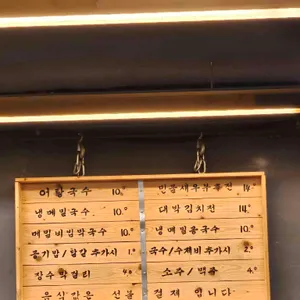 어탕국수 10.⁰
냉메밀국수 10.⁰
메밀비빔막국수 10.⁰
공기밥/탕감 추가시 1.⁰
장수막걸리 4.⁰
음식값은 선불
민물새우부추전 14.⁰
대박김치전 14.⁰
냉메밀콩국수 10.⁰
국수/수제비 추가시 2.⁰
소주/맥주 4.⁰
결제 합니다